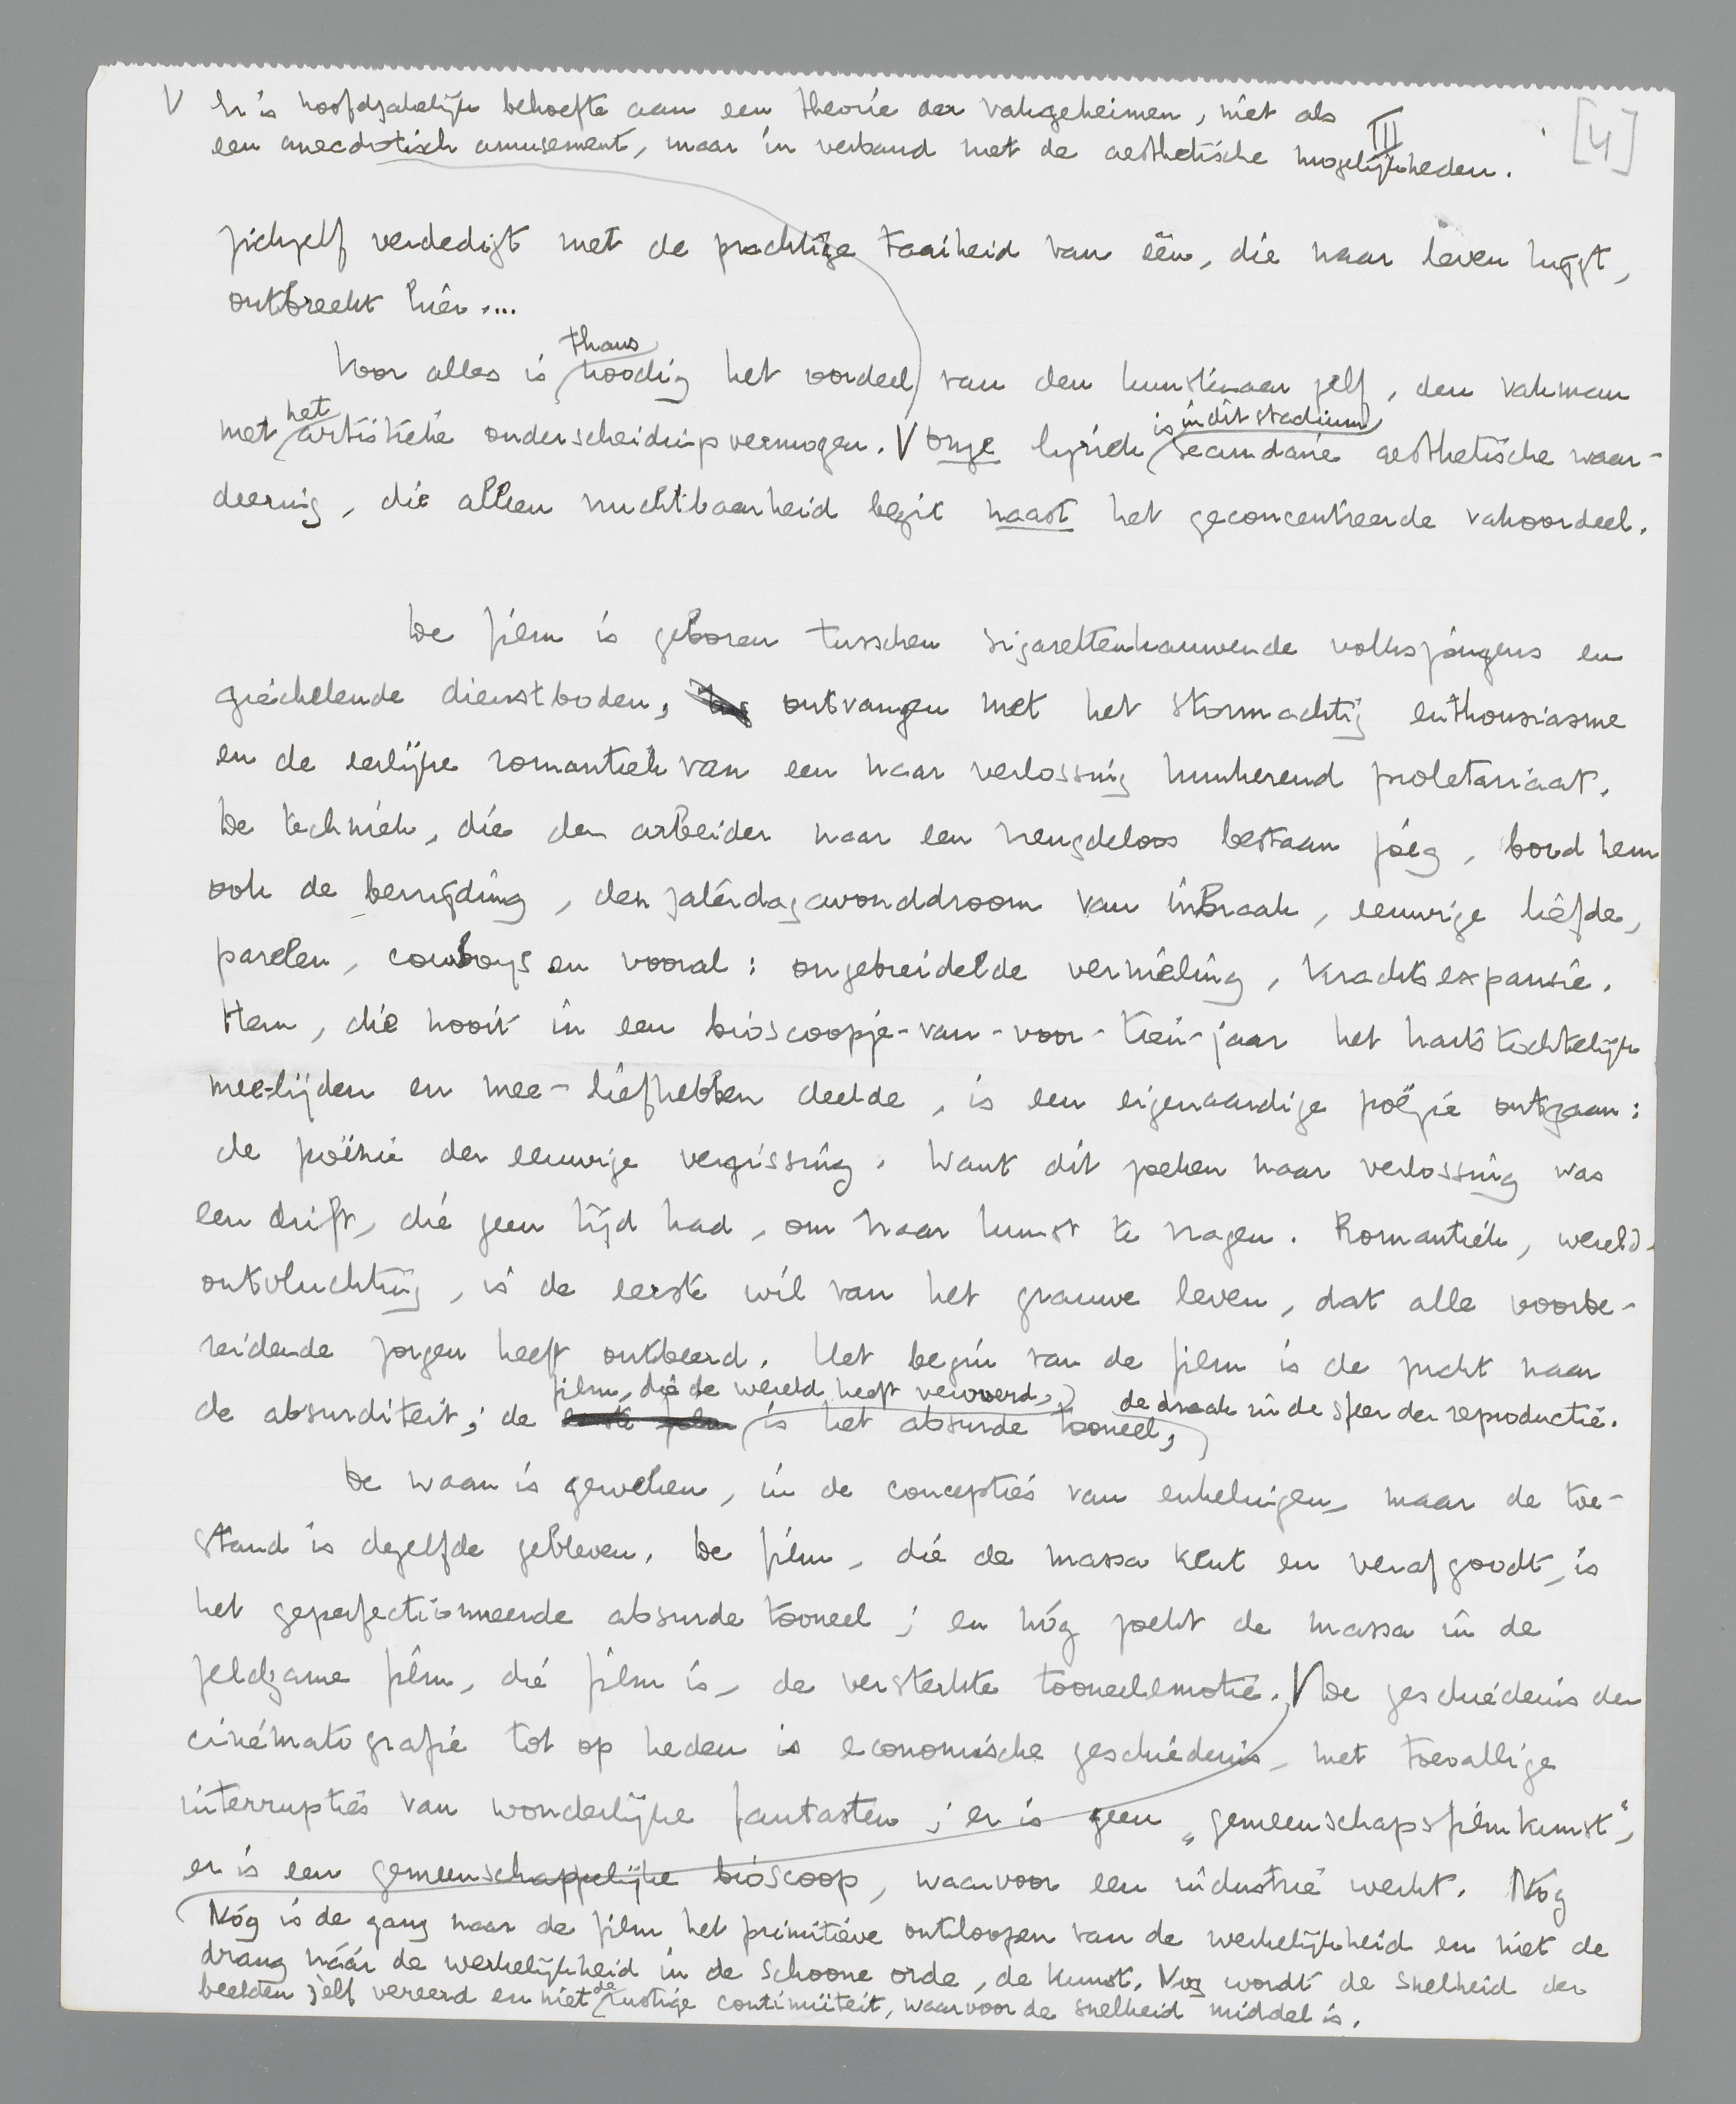 V Er is hoofdzakelijk behoefte aan een theorie der vakgeheimen, niet als
een anecdotisch amusement, maar in verband met de aesthetische mogelijkheden.
III
[4]
zichzelf verdedigt met de prachtige taaiheid van één, die naar leven hijgt,
ontbreekt hier....
Voor alles is thans noodig het oordeel van den kunstenaar zelf, den vakman
met het artistieke onderscheidingsvermogen. V Onze lyriek is in dit stadium secundaire aesthetische waar-
deering, die alleen vruchtbaarheid bezit naast het geconcentreerde vakoordeel.
De film is geboren tusschen sigarettenkauwende volksjongens en
giechelende dienstboden, ontvangen met het stormachtig enthousiasme
en de eerlijke romantiek van een naar verlossing hunkerend proletariaat.
De techniek, die den arbeider naar een vreugdeloos bestaan joeg, bood hem
ook de bevrijding, den zaterdagavonddroom van inbraak, eeuwige liefde,
parelen, cowboys en vooral: ongebreidelde vernieling, krachtsexpansie.
Hem, die nooit in een bioscoopje-van-voor-tien-jaar het hartstochtelijk
mee-lijden en mee-liefhebben deelde, is een eigenaardige poëzie ontgaan:
de poëzie der eeuwige vergissing. Want dit zoeken naar verlossing was
een drift, die geen tijd had, om naar kunst te vragen. Romantiek, wereld-
ontvluchting, is de eerste wil van het grauwe leven, dat alle voorbe-
reidende zorgen heeft ontbeerd. Het begin van de film is de zucht naar
de absurditeit; de eerste film film, die de wereld heeft veroverd, is het absurde tooneel, de draak in de sfeer der reproductie.
De waan is geweken, in de concepties van enkelingen, maar de toe-
stand is dezelfde gebleven. De film, die de massa kent en verafgoodt, is
het geperfectionneerde absurde tooneel; en nóg zoekt de massa in de
zeldzame film, die film is, de versterkte tooneelemotie. V De geschiedenis der
cinématografie tot op heden is economische geschiedenis, met toevallige
interrupties van wonderlijke fantasten; er is geen „gemeenschapsfilmkunst",
er is een gemeenschappelijke bioscoop, waarvoor een industrie werkt. Nóg
Nóg is de gang naar de film het primitieve ontloopen van de werkelijkheid en niet de
drang náár de werkelijkheid in de schoone orde, de kunst. Nog wordt de snelheid der
beelden zélf vereerd en niet de rustige continuïteit, waarvoor de snelheid middel is.